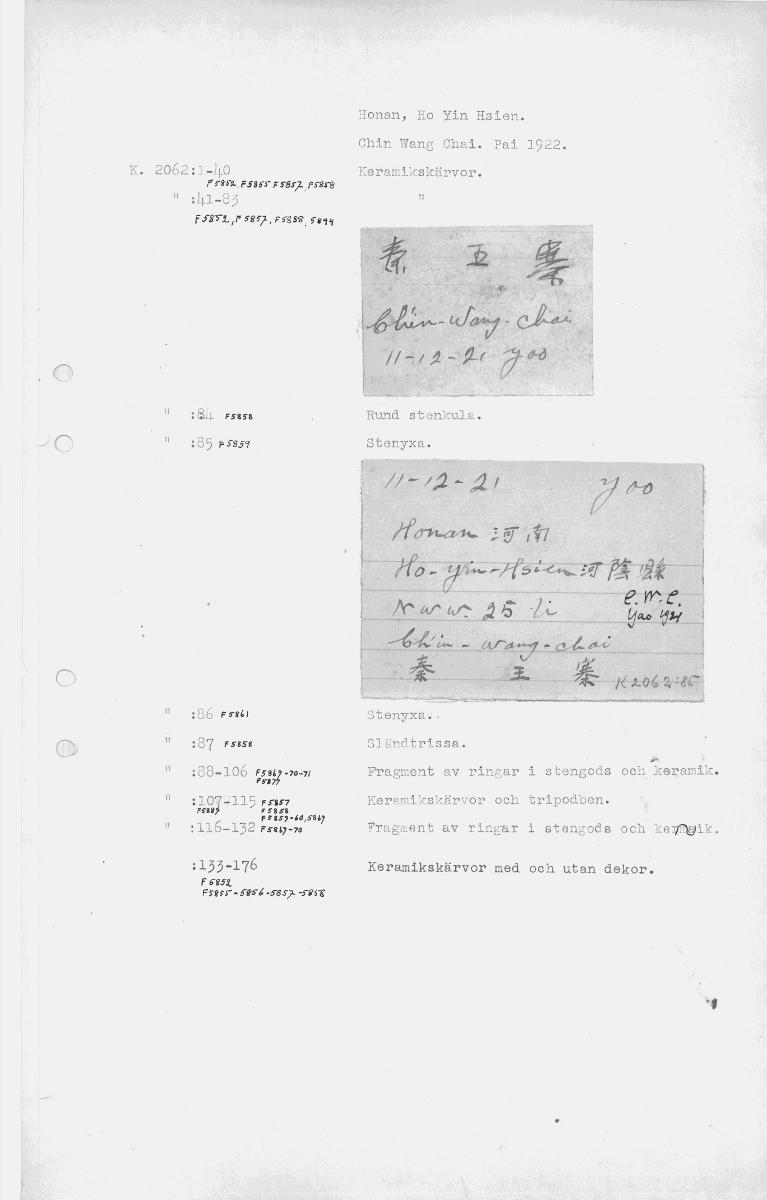 Honan, Ho Yin Hsien.
Chin Wang Chai. Pai 1922.
K. 2062:1-40 Keramikskärvor.
F5852, F5855 F5857, F5858
" :41-83 "
F5852, F5857, F5858, 5894
秦 王 寨
Chin-Wang-Chai
11-12-21 yoo
" :84 F5858 Rund stenkula.
" :85 F5859 Stenyxa.
11-12-21 yoo
Honan 河南
Ho-yin-Hsien 河陰縣
N W W. 25 li
e.m.e.
Yao 1921
Chin-wang-chai
秦 王 寨 K2062:85
" :86 F5861 Stenyxa.
" :87 F5858 Sländtrissa.
" :88-106 F5869-70-71 Fragment av ringar i stengods och keramik.
F5877
" :107-115 F5857 Keramikskärvor och tripodben.
F5889 F5858
F5859-60, 5869
" :116-132 F5869-70 Fragment av ringar i stengods och keramik.
:133-176 Keramikskärvor med och utan dekor.
F5852
F5855-5856-5857-5858